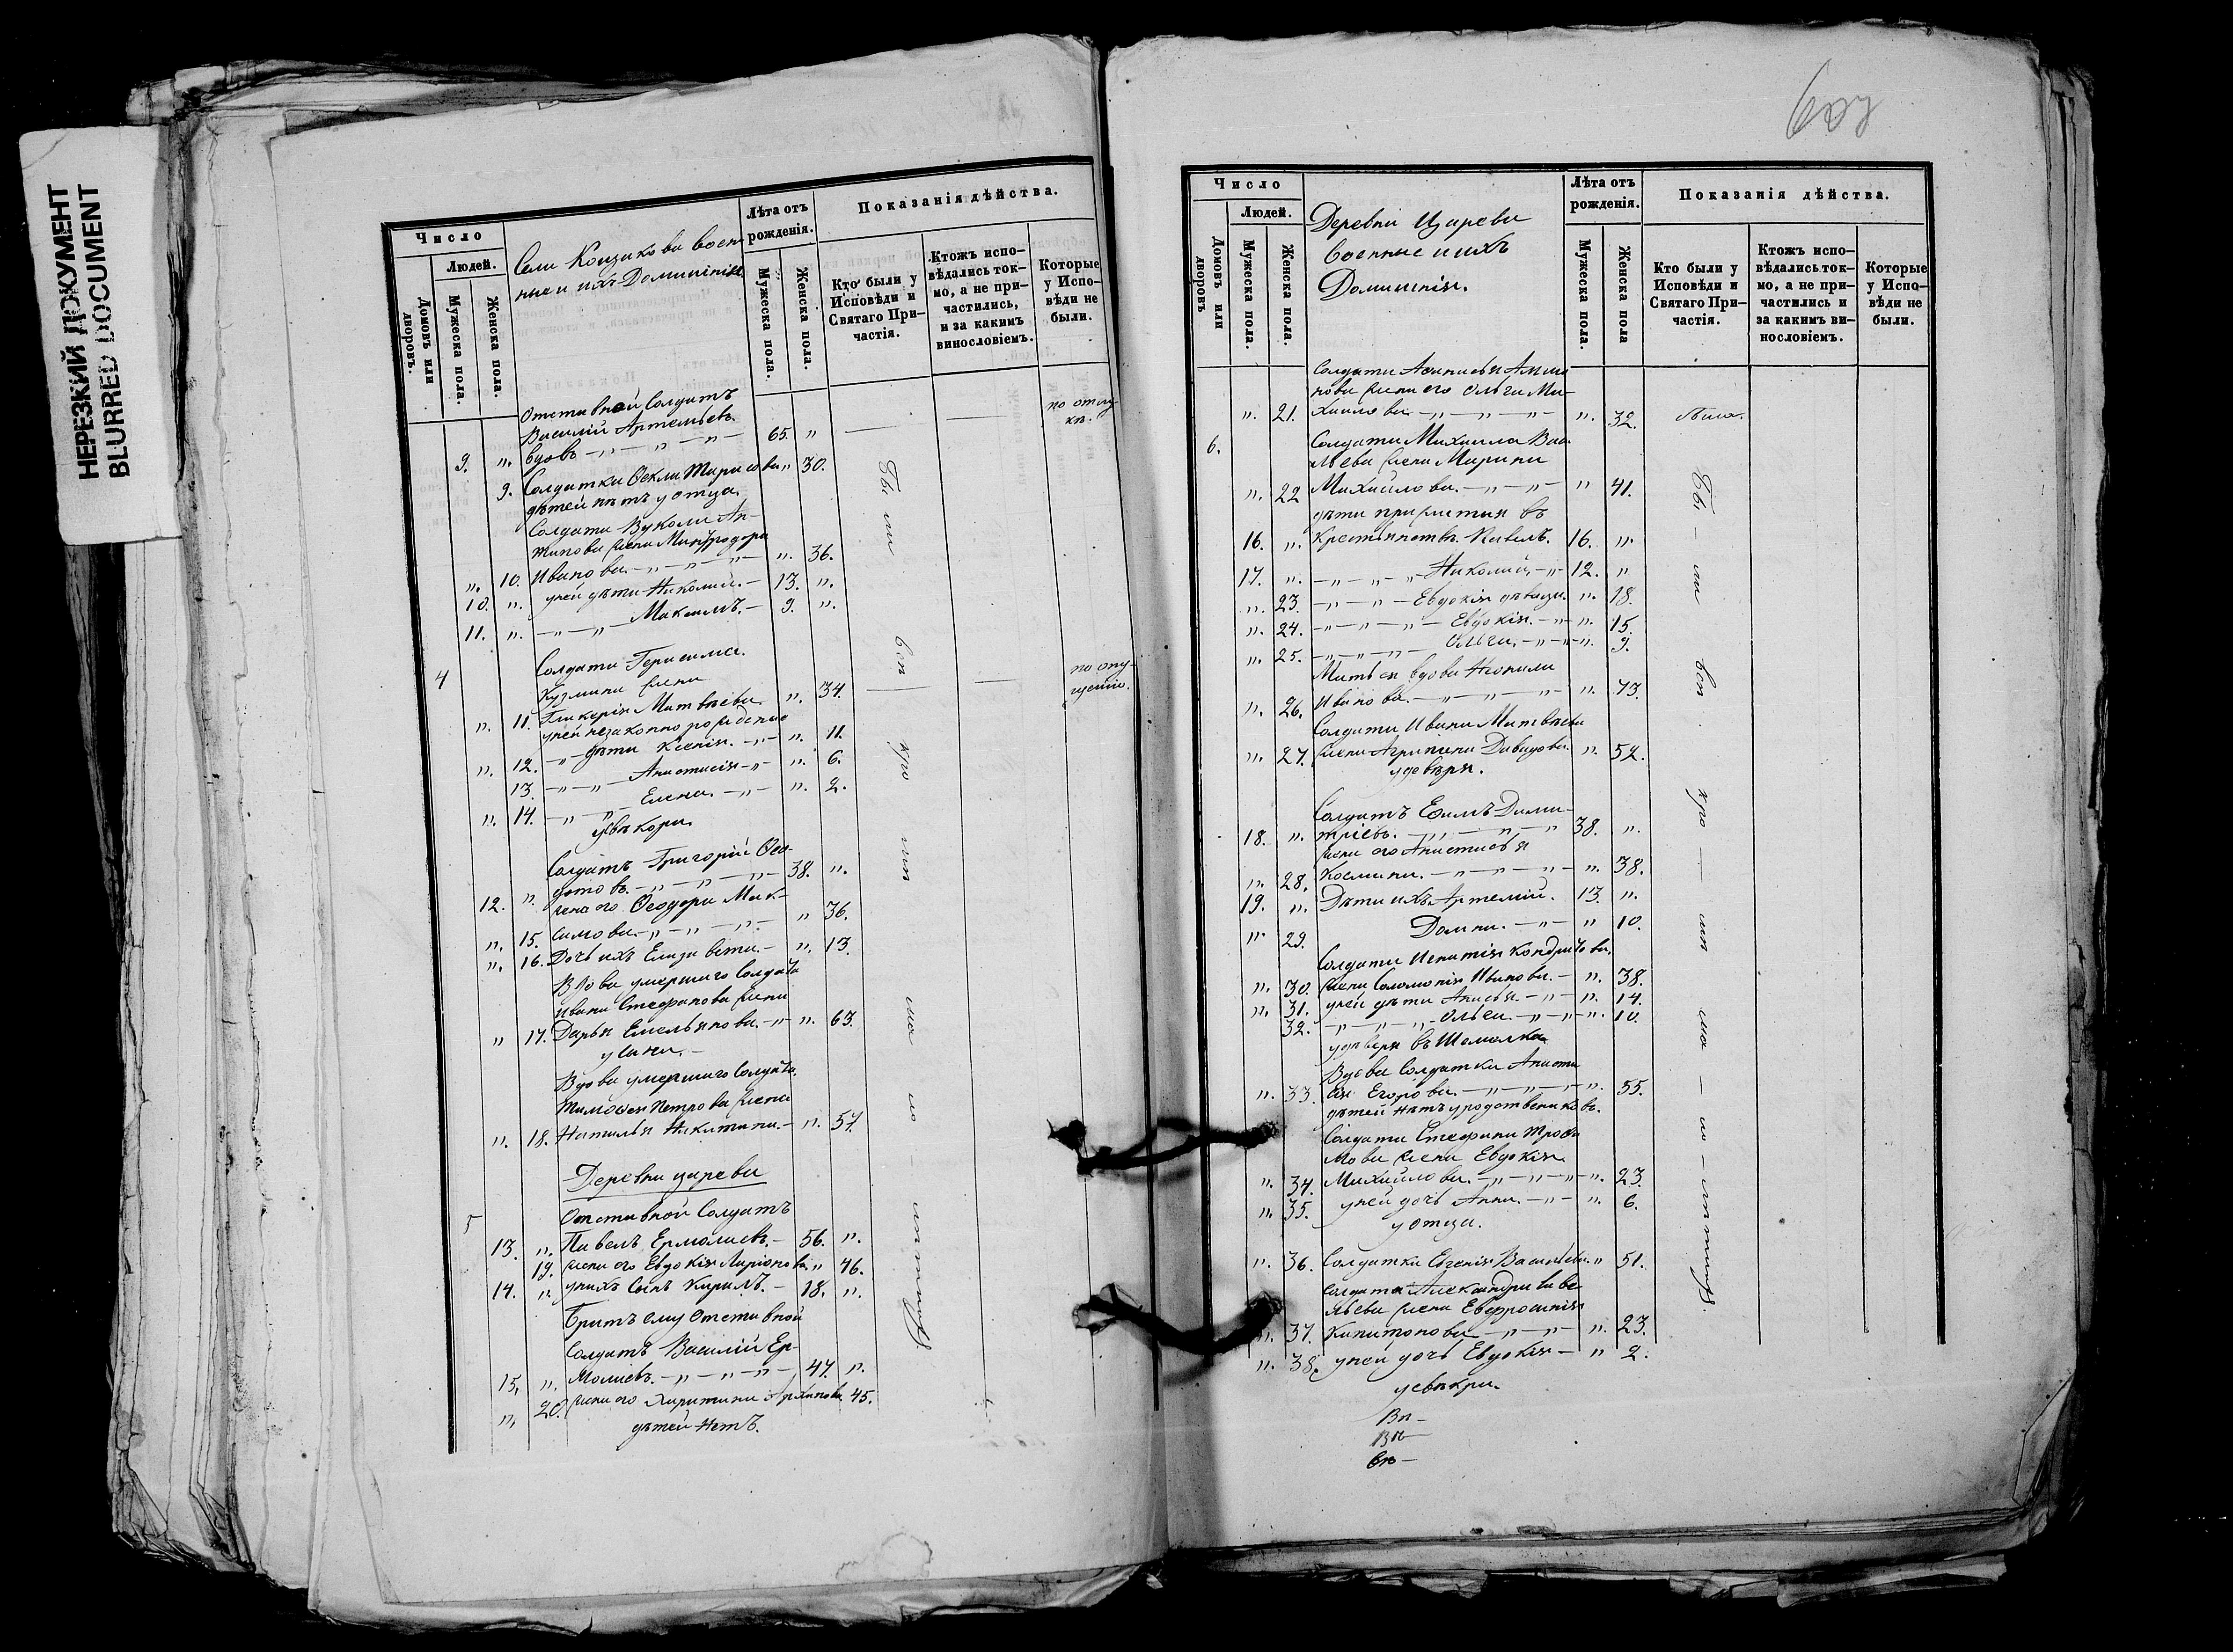 НЕРЕЗКИЙ ДОКУМЕНТ
BLURRED DOCUMENT
Число
Людей.
Домовъ или дворовъ.
Мужеска пола.
Женска пола.
Села Кощакова воен-
ные и ихъ Домашнія
Лѣта отъ рожденія.
Мужеска пола.
Женска пола.
Показанія дѣйства.
Кто были у Исповѣди и Святаго При-частія.
Ктожъ испо-вѣдались ток-мо, а не при-частились, и за какимъ винословіемъ.
Которые у Испо-вѣди не были.
Отставной Солдатъ
Василій Артемьевъ.
9. „ вдовъ - „ - „ - „ - 65. „
по отлу-
кѣ.
9. Солдатка Ѳекла Тарасова „ 30.
дѣтей нѣтъ у отца.
Солдата Вукола Ан-
типова жена
„ 10. Иванова - „ - „ - „ 36.
10. „ у ней дѣти Николай. - 13. „
11. „ - „ - „ Максимъ. - 9. „
4 Солдата Герасима
Кузмина жена
„ 11. Гликерія Матвѣева. „ 34.
по опу-
щенію.
у ней незаконнорожденные
„ 12. - „ дѣти Ксенія. - „ - „ 11.
13. - „ - „ Анастасія - „ - „ 6.
„ 14. - „ - „ Елена. - „ - „ 2.
у свекора.
Солдатъ Григорій Ѳео-
12. „ дотовъ. - „ - „ - „ - 38. „
жена его Ѳеодора Мак-
„ 15. симова - „ - „ - „ „ 36.
„ 16. Дочь ихъ Елизавета. - „ 13.
Вдова умершаго Солдата
Ивана Стефанова жена
„ 17. Дарья Емельянова. - „ - „ 63.
у сына. -
Вдова умершаго Солдата
Тимоѳея Петрова жена
„ 18. Наталья Никитина. - „ 57.
Деревни Царева
5 Отставной Солдатъ
13. „ Павелъ Ермолаевъ. - 56. „
19. жена его Евдокія Ларіонова „ 46.
14. „ у нихъ сынъ Кирилъ. - 18. „
Братъ ему Отставной
Солдатъ Василій Ер-
15. „ молаевъ. - „ - „ - „ - 47. „
„ 20. жена его Харитина Архипова 45.
дѣтей нетъ.
Бы ли вси
Число
Людей.
Домовъ или дворовъ
Мужеска пола.
Женска пола.
Деревни Царева
военные и ихъ
Домашнія.
Лѣта отъ рожденія.
Мужеска пола.
Женска пола
Показанія дѣйства.
Кто были у Исповѣди и Святаго При-частія.
Ктожъ испо-вѣдались ток-мо, а не при-частились и за какимъ ви-нословіемъ.
Которые у Испо-вѣди не были.
Солдата
жена его Ольга Ми-
„ 21. хайлова. - „ - „ - „ - „ 32. была.
6. Солдата Михаила Васи-
льева жена Марина
„ 22 Михайлова. - „ - „ - „ 41.
дѣти прижитыя въ
16. „ Крестьянствѣ. Павелъ. 16. „
17. „ - „ - „ - „ Николай. - „ - 12. „
„ 23. - „ - „ - Евдокія дѣвица. „ 18.
„ 24. - „ - „ - „ - Евдокія. - „ - „ 15.
„ 25. - „ - „ - „ - Ольга. - „ - „ - „ 9.
Мать ея вдова Неонила
„ 26. Иванова. - „ - „ - „ - „ 73.
Солдата Ивана Матвѣева
„ 27. жена Агрипина Давыдова. „ 52.
у деверя.
Солдатъ Ефимъ Дими-
18. „ тріевъ. - „ - „ - „ 38. „
жена его Анастасья
„ 28. Космина. - „ - „ - „ - „ 38.
19. „ Дѣти ихъ Артемій. 13. „
„ 29. Домна. - „ - „ 10.
Солдата Игнатія Кондратова
„ 30. жена Соломонія Иванова. - „ 38.
„ 31. у ней дѣти Анисья. - „ - „ 14.
32. - „ - „ - „ - Ольга. - „ - „ - „ 10.
у деверя въ
Вдова Солдатка Анаста-
„ 33. сія Егорова. - „ - „ - „ - „ 55.
дѣтей нѣтъ у родственниковъ.
Солдата Стефана Трофи
мова жена Евдокія
„ 34. Михайлова. - „ - „ - „ - „ 23.
„ 35. у ней дочь Анна. - „ - „ 6.
у отца.
„ 36. Солдатка Евгенія Васильева „ 51.
Солдата Александра Саве-
льева жена Евфросинія
„ 37. Капитонова - „ - „ - „ 23.
„ 38. у ней дочь Евдокія - „ 2.
у свѣкра.
Бы - ли вси
Вп -